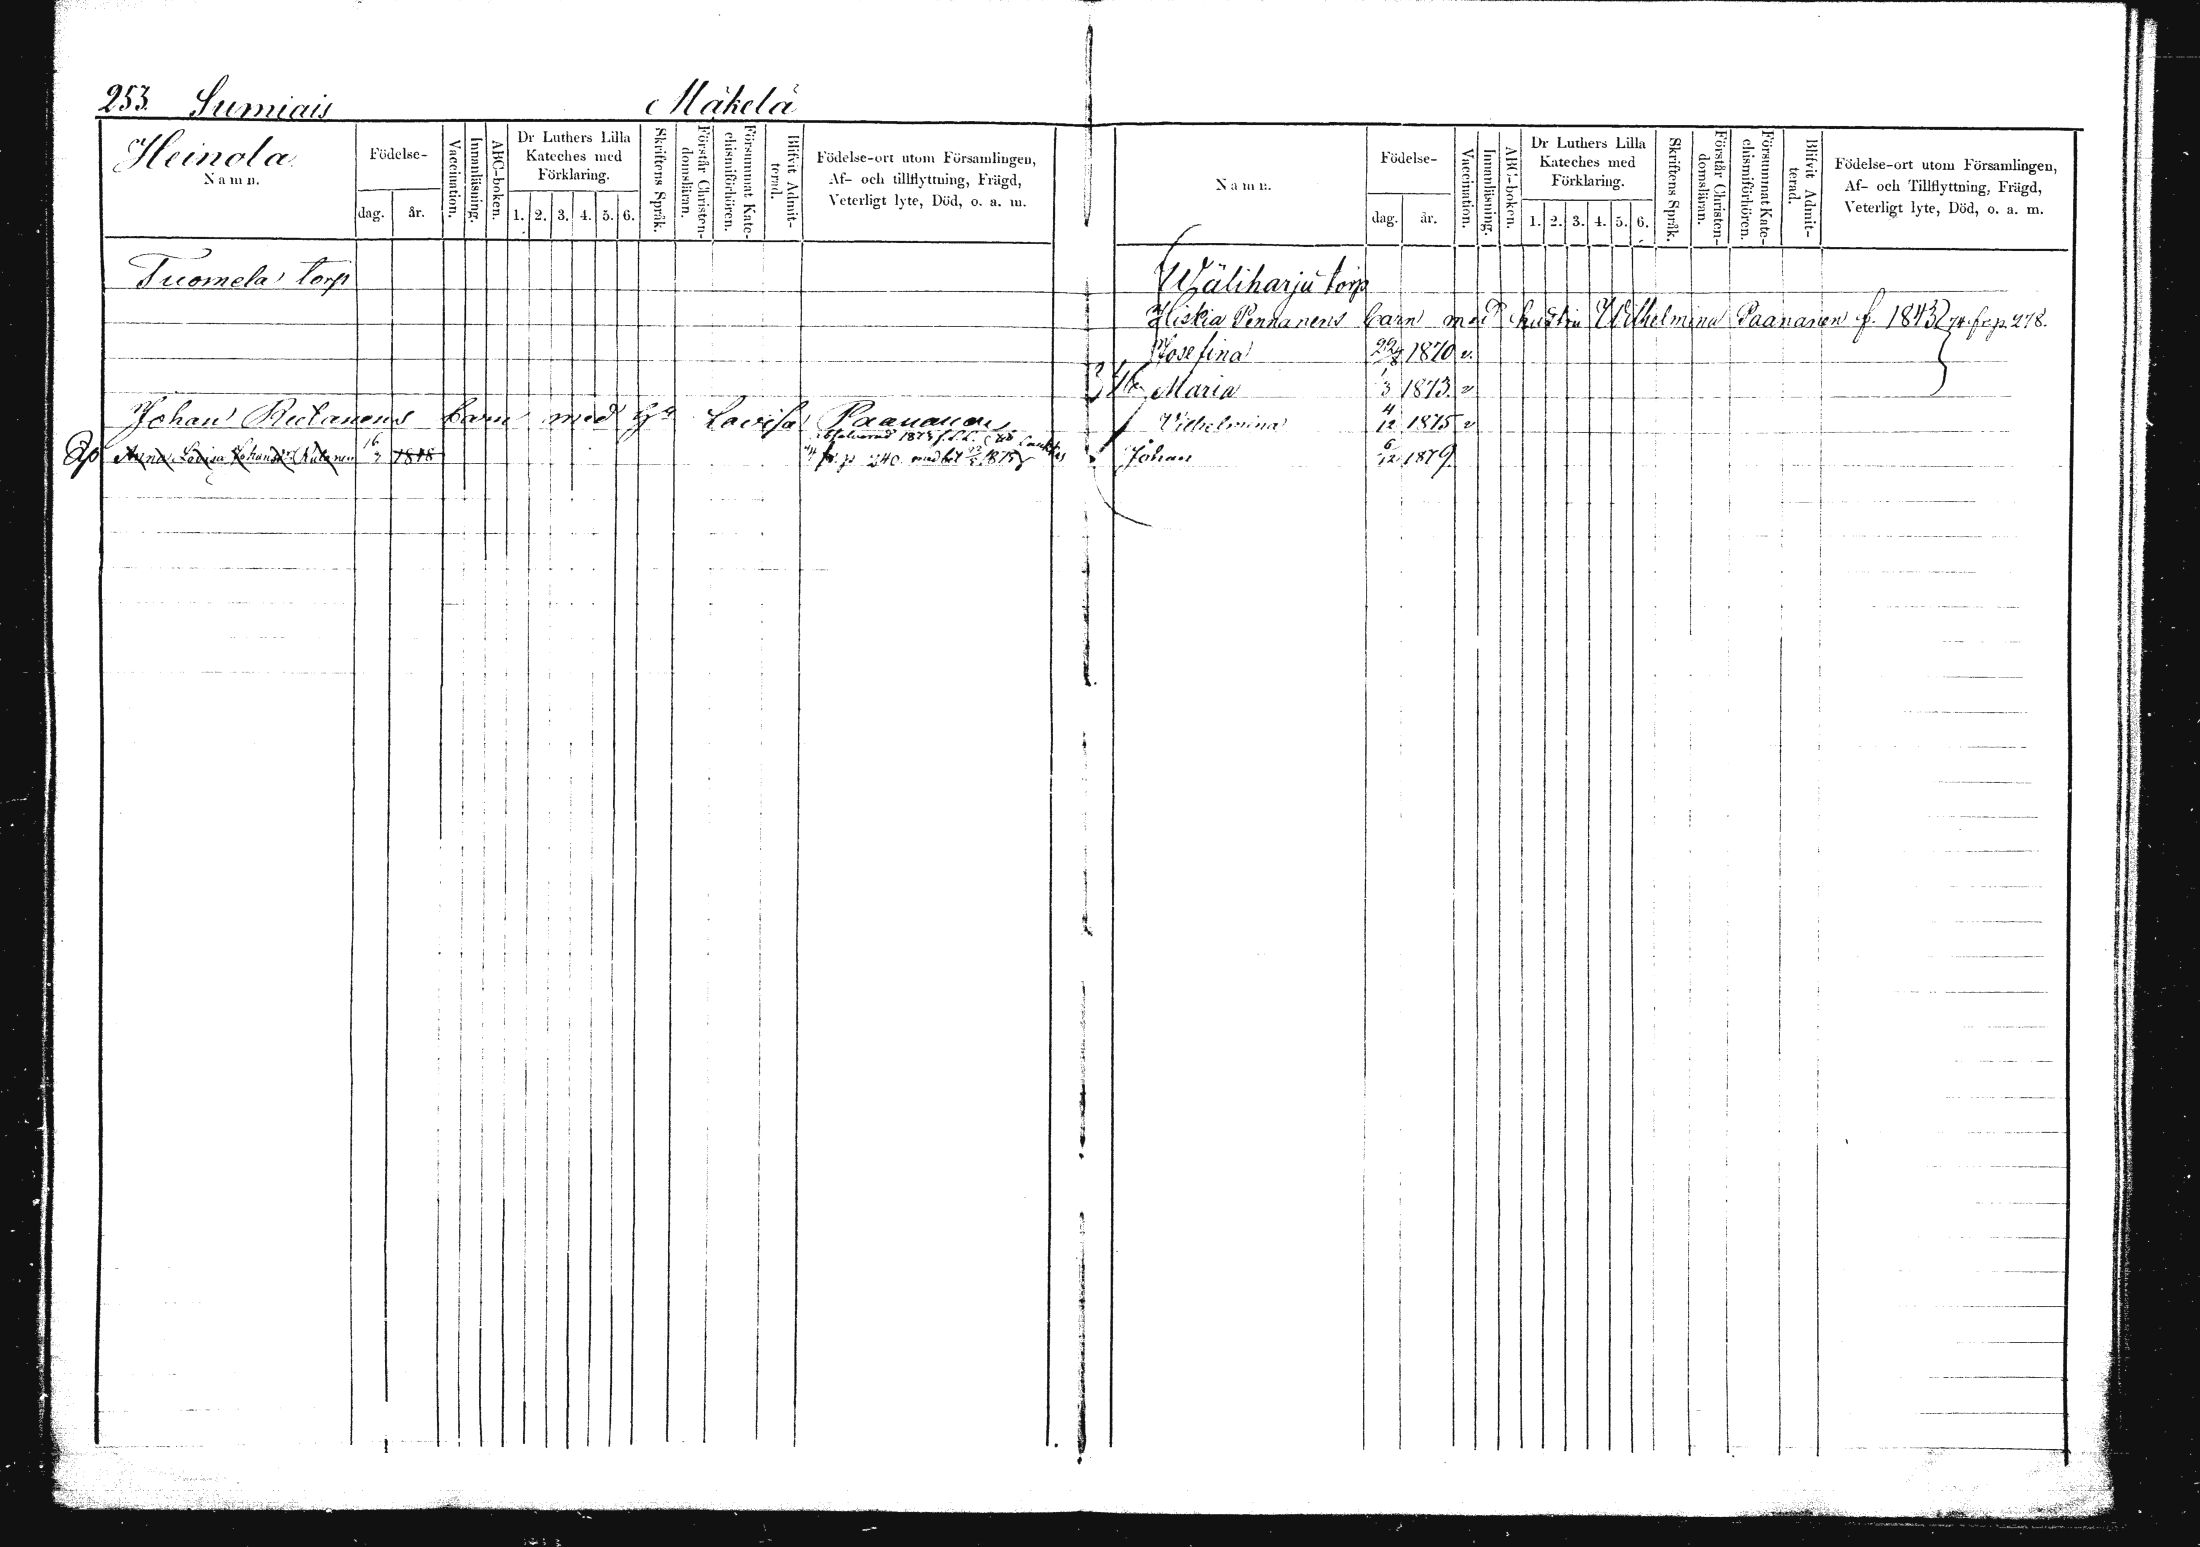 253. Sumiais Mäkelä
Heinola
Namn.
Födelse-
dag. år.
Vaccination.
Innanläsning.
ABC-boken.
Dr Luthers Lilla
Kateches med
Förklaring.
1. 2. 3. 4. 5. 6.
Skriftens Språk.
Förstår Christen-
domsläran.
Försummat Kate-
chismiförhören.
Blifvit Admit-
terad.
Födelse-ort utom Församlingen,
Af- och tillflyttning, Frägd,
Veterligt lyte, Död, o. a. m.
Tuomela torp
Johan Rutanens barn med Ha Lovisa Paananen
1873
Anna Lovisa Johansdr Rutanen 16 1818 fr. p. 240. med bet 1875
Namn.
Födelse-
dag. år.
Vaccination.
Innanläsning.
ABC-boken.
Dr Luthers Lilla
Kateches med
Förklaring.
1. 2. 3. 4. 5. 6.
Skriftens Språk.
Förstår Christen-
domsläran.
Försummat Kate-
chismiförhören.
Blifvit Admit-
terad.
Födelse-ort utom Församlingen,
Af- och Tillflyttning, Frägd,
Veterligt lyte, Död, o. a. m.
Wäliharju torp
Hiskia Pennanens barn med hustru Wilhelmina Paananen f. 1843 74 fr p 278.
Josefina 1870 v.
Maria 1/3 1873. v
Vilhelmina 4/12 1875 v
Johan 6/12 1879.